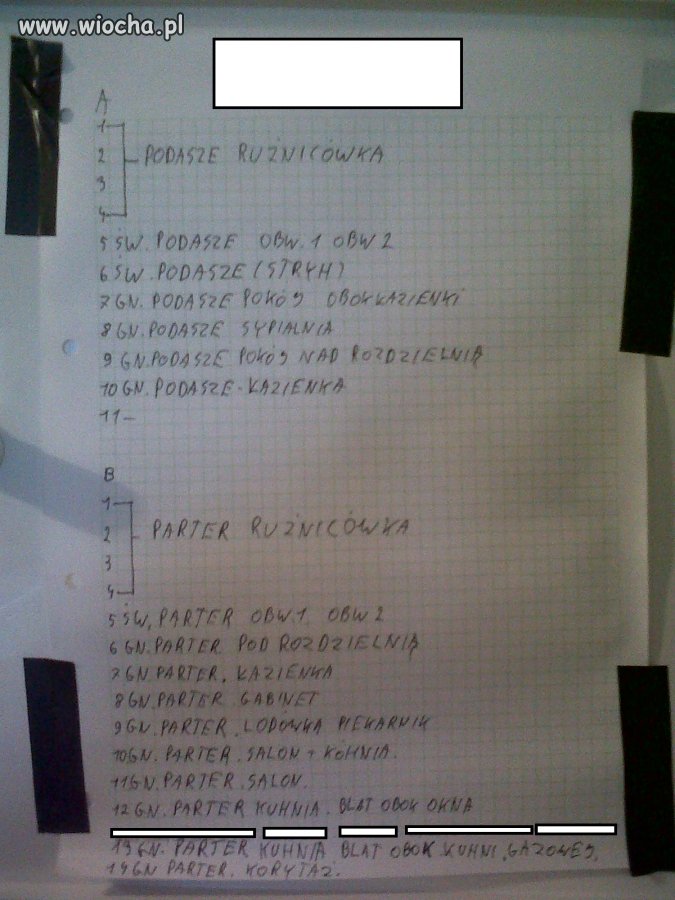 www.wiocha.pl
A
1
2 PODASZE RUŻNICÓWKA
3
4
5 ŚW. PODASZE OBW. 1 OBW 2
6 ŚW. PODASZE (STRYH)
7 GN. PODASZE POKÓJ OBOK ŁAZIENKI
8 GN. PODASZE SYPIALNIA
9 GN. PODASZE POKÓJ NAD ROZDZIELNIĄ
10 GN. PODASZE - ŁAZIENKA
11 -
B
1
2 PARTER RUŻNICÓWKA
3
4
5 ŚW. PARTER OBW. 1 OBW 2
6 GN. PARTER POD ROZDZIELNIĄ
7 GN PARTER. ŁAZIENKA
8 GN. PARTER. GABINET
9 GN. PARTER. LODÓWKA PIEKARNIK
10 GN. PARTER. SALON + KÓHNIA.
11 GN. PARTER. SALON.
12 GN. PARTER KUHNIA. BLAT OBOK OKNA
13 GN. PARTER KUHNIA BLAT OBOK KUHNI GAZOWEJ.
14 GN PARTER. KORYTAŻ.